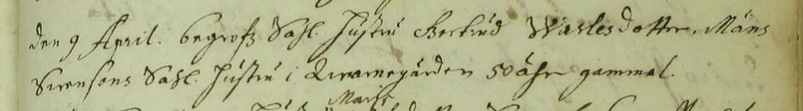 den 9 April. begrofs Sahl. Hustru Gertrud Waslesdotter, Måns
Svensons Sahl. Hustru i Qvarnegården 50 åhr gammal.